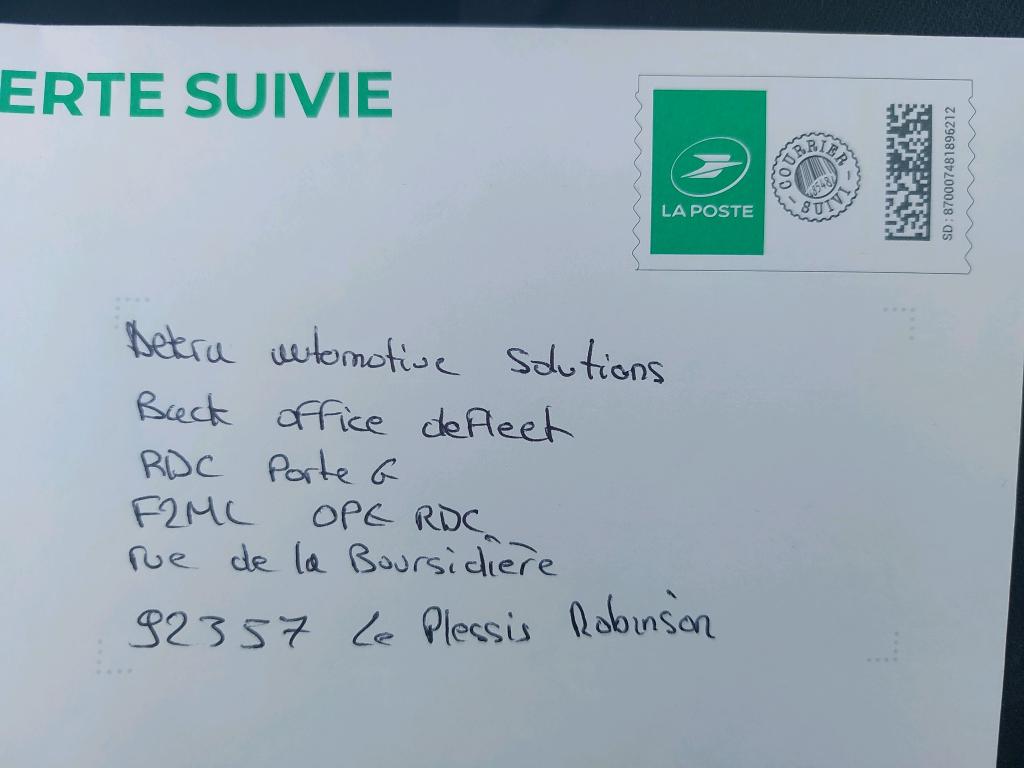 ERTE SUIVIE
LA POSTE
COURRIER
SUIVI
SD : 870007481896212
Dekra automotive Solutions
Back office defleet
RDC Porte G
F2ML OPE RDC
rue de la Boursidière
92357 Le Plessis Robinson